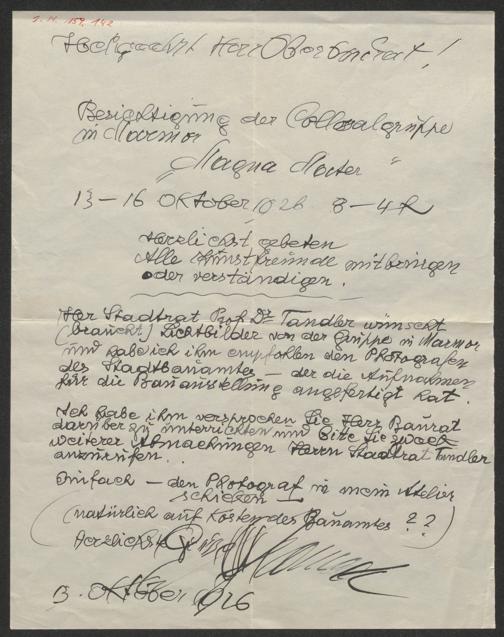 I. N. 159.142
Hochgeehrt Herr Oberbaurat!
Besichtigung der Collosalgruppe
in Marmor
„Magna Mater"
13–16 Oktober 1926 8–4 h
Herzlichst gebeten
Alle Kunstfreunde mitbringen
oder verständigen.
Herr Stadtrat Prof. Dr Tandler wünscht
(braucht) Lichtbilder von der Gruppe in Marmor
und habe ich ihm empfohlen den Photografen
des Stadtbauamtes – der die Aufnahmen
für die Bauausstellung angefertigt hat.
Ich habe ihm versprochen Sie Herr Baurat
darüber zu unterrichten und bitte Sie zwecks
weiterer Abmachungen Herrn Stadtrat Tandler
anzurufen.
Einfach – den Photograf in mein Atelier
schicken
(natürlich auf Kosten des Bauamtes ??)
Herzlichst
13. Oktober 1926